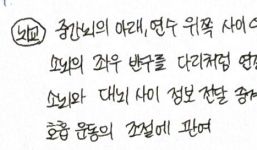 뇌교 중간뇌의 아래, 연수 위쪽 사이
소뇌의 좌우 반구를 다리처럼
소뇌와 대뇌 사이 정보 전달
호흡 운동의 조절에 관여